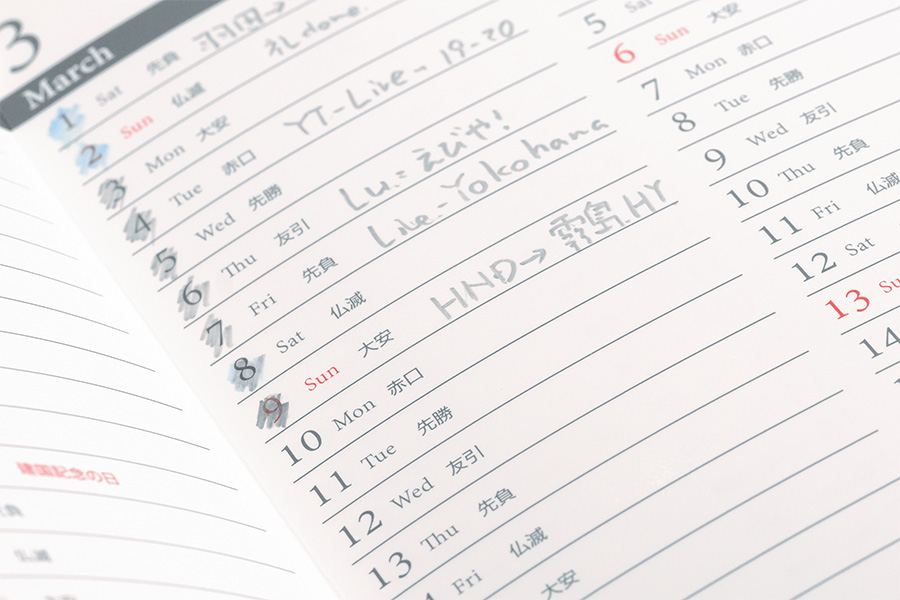 3
March
1 Sat 先負 羽田→
2 Sun 仏滅 done.
3 Mon 大安
4 Tue 赤口 YT-Live- 19-20
5 Wed 先勝
6 Thu 友引 Lu.: えびや!
7 Fri 先負 Live-Yokohana
8 Sat 仏滅
9 Sun 大安 HND→霧島HY
10 Mon 赤口
11 Tue 先勝
12 Wed 友引
13 Thu 先負
Fri 仏滅
大安
5 Sat
6 Sun 大安
7 Mon 赤口
8 Tue 先勝
9 Wed 友引
10 Thu 先負
11 Fri 仏滅
12 Sat
13 Su
14
建国記念の日
仏滅